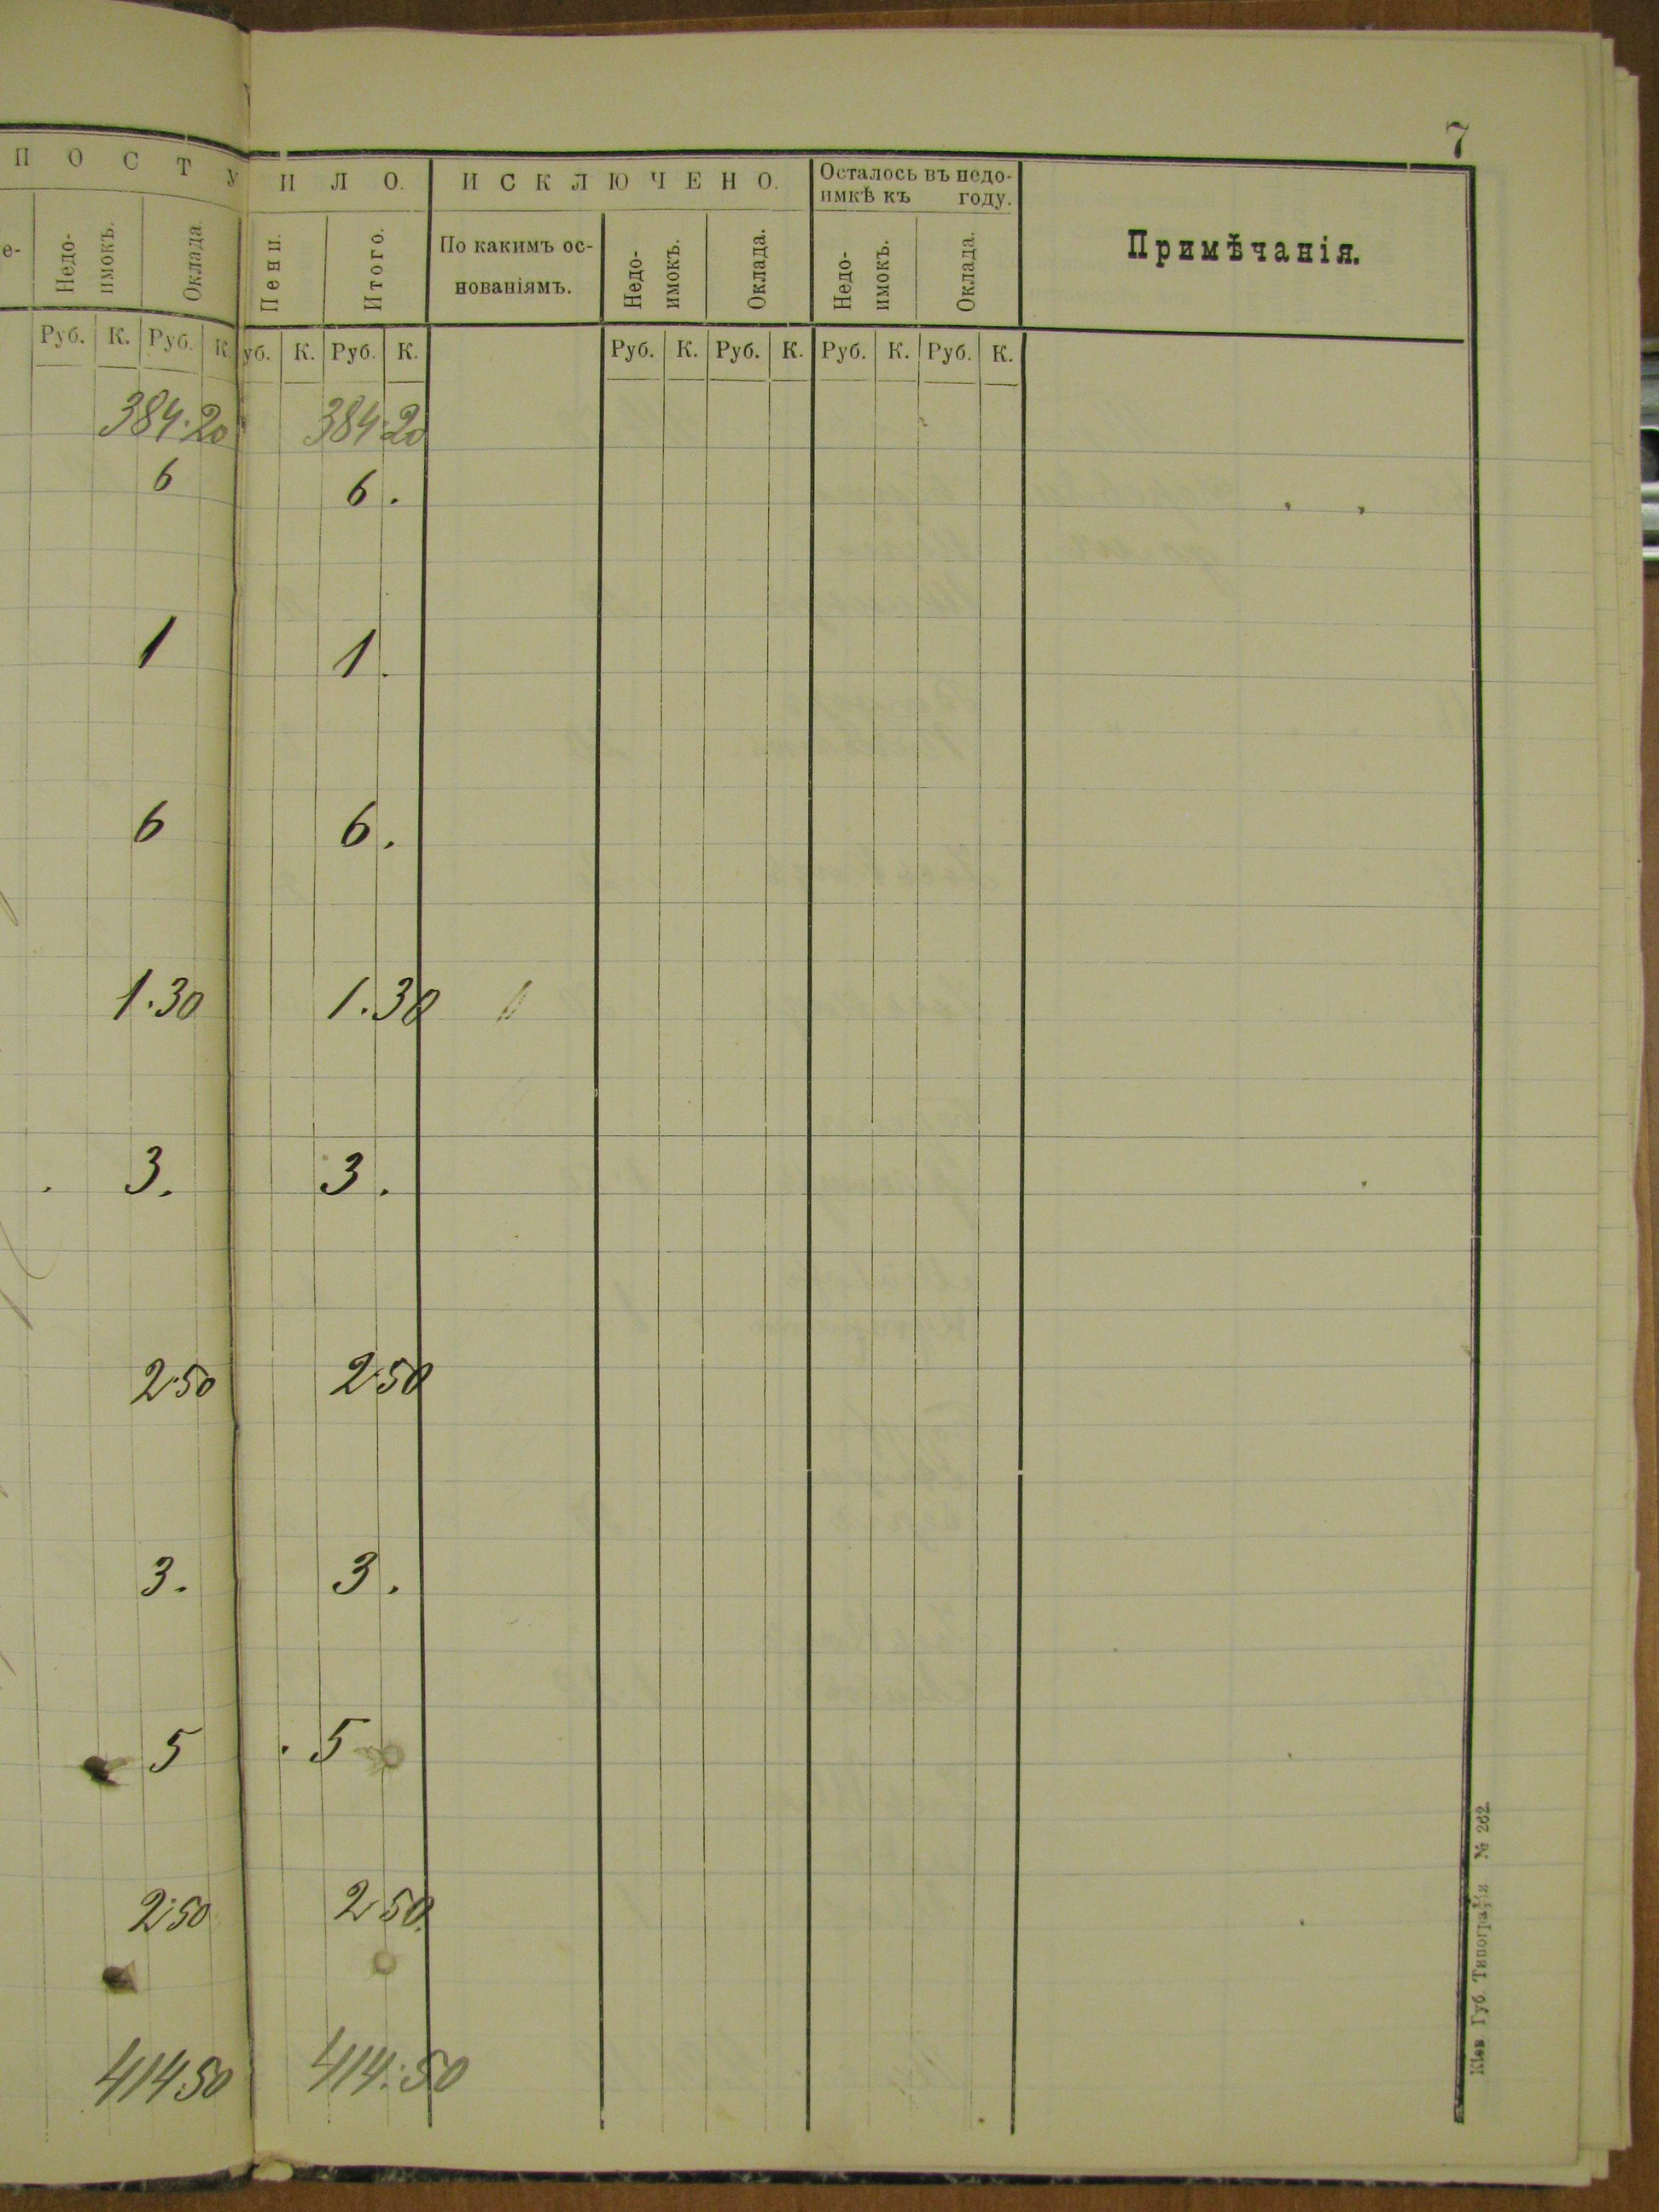 7
ПОСТУ
ПИЛО.
ИСКЛЮЧЕНО.
Осталось въ недо-
имкѣ къ году.
Примѣчанія.
е-
Недо-
имокъ.
Оклада
Пени.
Итого.
По какимъ ос-
нованіямъ.
Недо-
имокъ.
Оклада.
Недо-
имокъ.
Оклада.
Руб. К. Руб. К. уб. К. Руб. К. Руб. К. Руб. К. Руб. К. Руб. К.
384.20 384.20
6 6.
1 1.
6 6.
1.30 1.30
3. 3.
2.50 2.50
3. 3.
5 5
2.50 2.50.
414.50 414.50
Кіев. Губ. Типографія № 262.